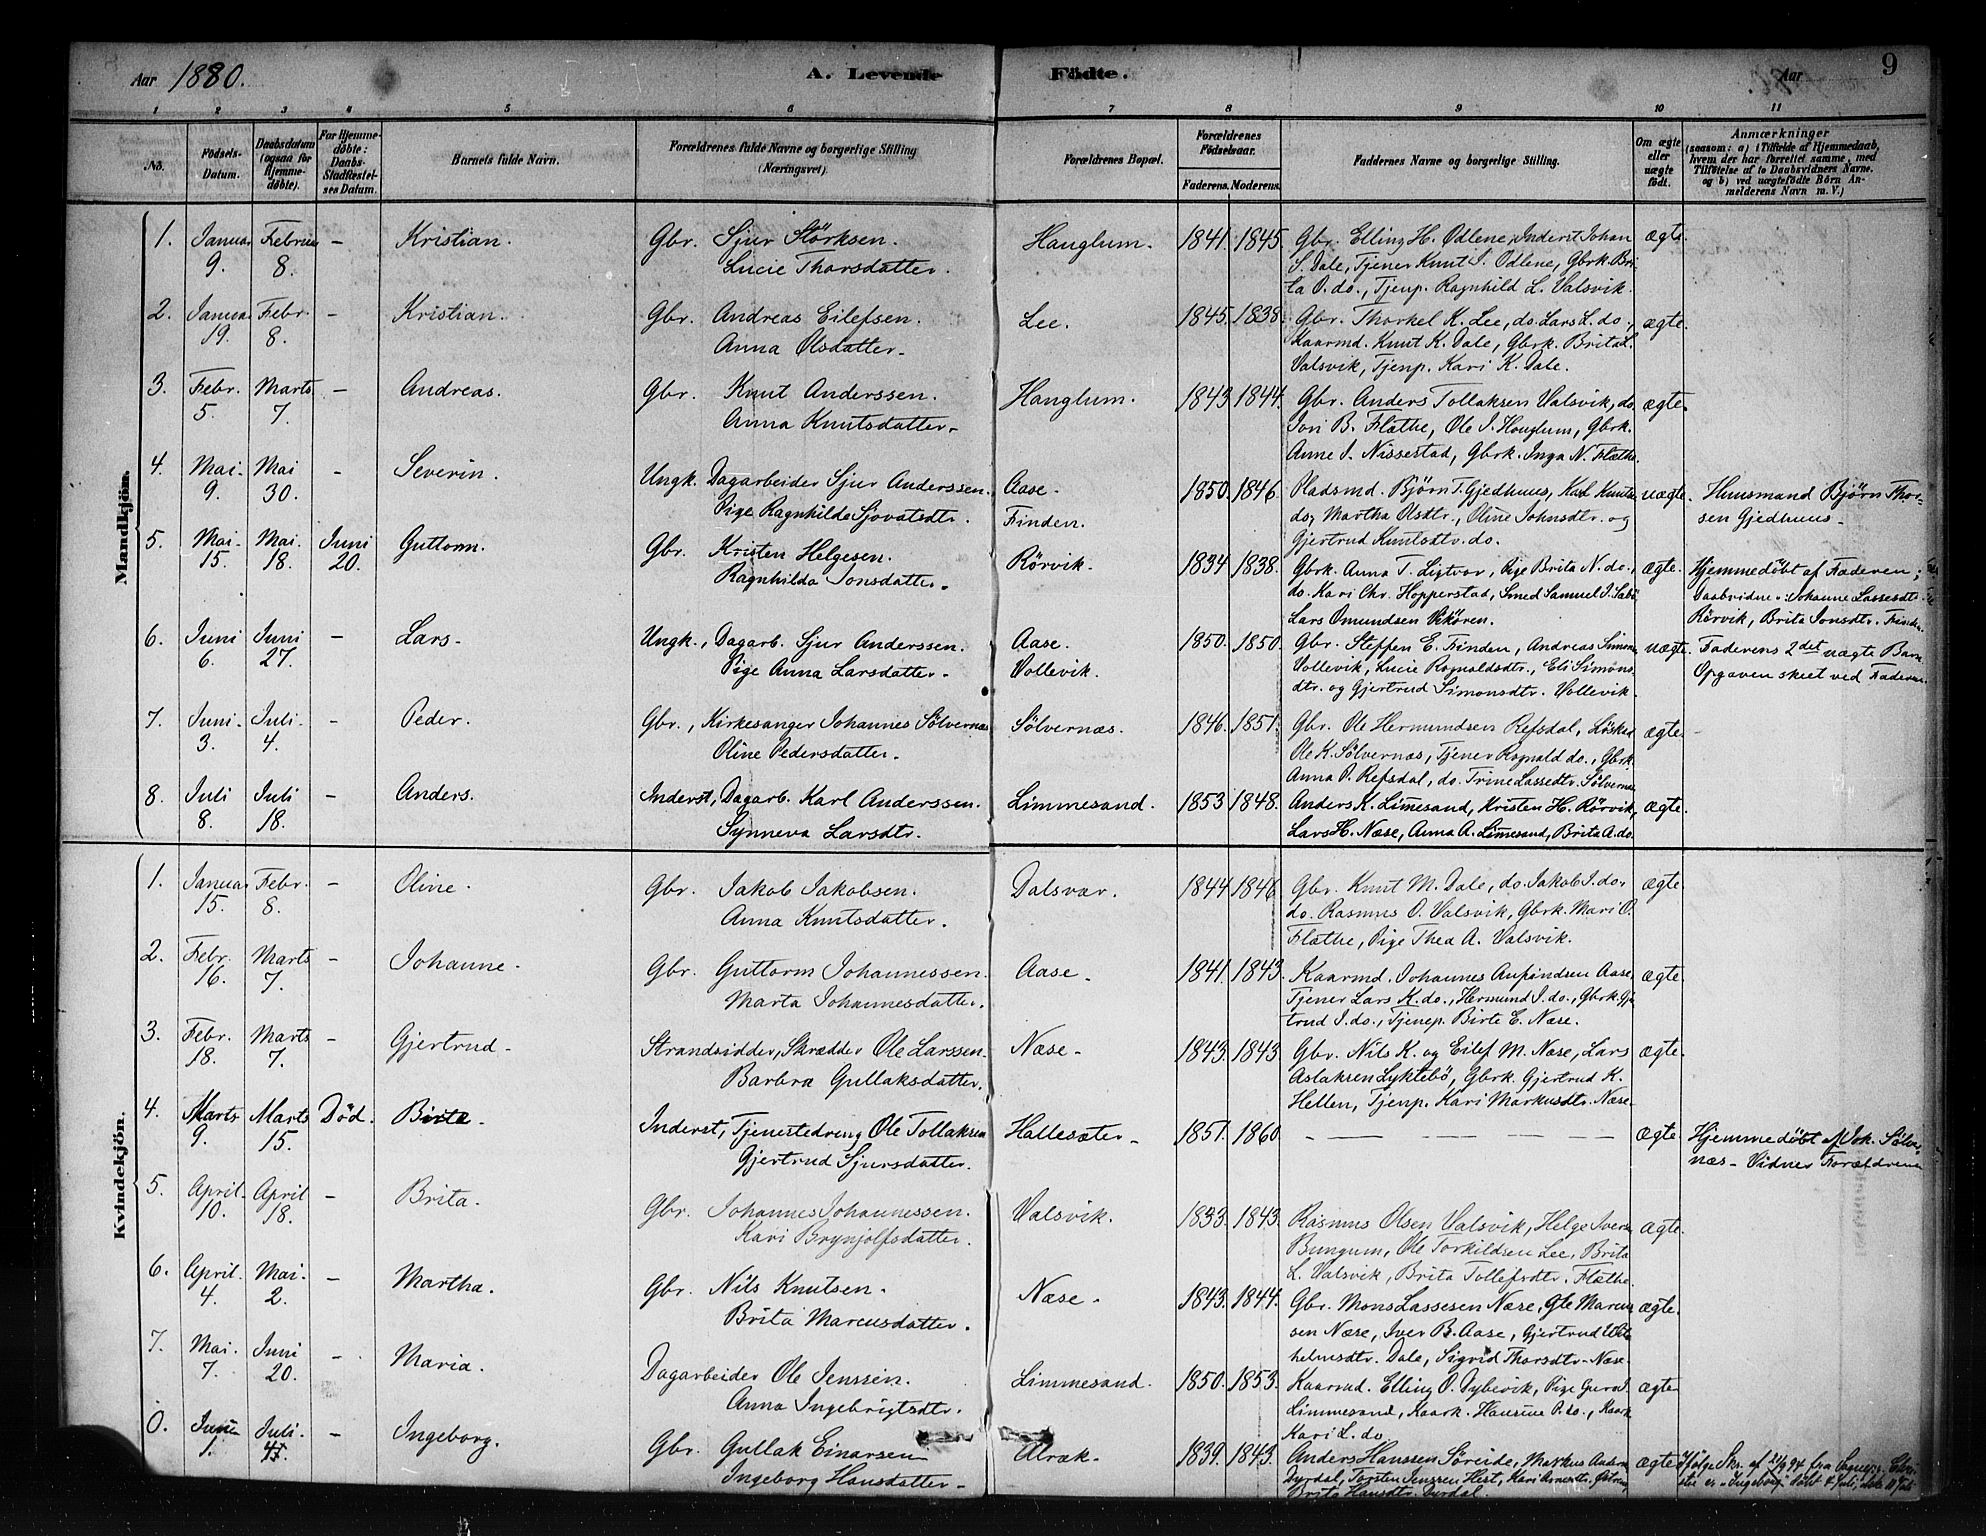 Aar 1880.
A. Levende Födte.
Aar
9
1 2 3 4 5 6 7 8 9 10 11
No.
Födsels-Datum.
Daabsdatum (ogsaa for Hjemme-döbte).
For Hjemme-döbte: Daabs-Stadfæstel-ses Datum.
Barnets fulde Navn.
Forældrenes fulde Navne og borgerlige Stilling (Næringsvei).
Forældrenes Bopæl.
Forældrenes Födselsaar.
Faderens. Moderens.
Faddernes Navne og borgerlige Stilling.
Om ægte eller uægte födt.
Anmærkninger
(saasom: a) i Tilfælde af Hjemmedaab, hvem der har forrettet samme, med Tilföielse af to Daabsvidners Navne. og b) ved uægtefödte Börn Anmelderens Navn m. V.)
Mandkjön.
1. Januar 9. Februar 8. – Kristian. Gbr. Sjur Störksen. Hauglum. 1841. 1845. Gbr. Elling H. Ödlene, Inderst Johan ægte
Lucie Thorsdatter. S. Dale, Tjener Knut I. Ödlene, Gbrk. Bri-
ta O. do., Tjenp. Ragnhild L. Valsvik.
2. Januar 19. Febr. 8. – Kristian. Gbr. Andreas Eilefsen. Lee. 1845. 1838. Gbr. Thorkel K. Lee, do. Lars L. do., ægte.
Anna Olsdatter. Kaarmd. Knut K. Dale, Gbrk. Brita L.
Valsvik, Tjenp. Kari K. Dale.
3. Febr. 5. Marts 7. – Andreas. Gbr. Knut Anderssen. Hauglum. 1843. 1844. Gbr. Anders Tollaksen Valsvik, do. ægte.
Anna Knutsdatter. B. Flæthe, Ole I. Hauglum, Gbrk.
Anne I. Nissestad, Gbrk. Inga N. Flæthe.
4. Mai 9. Mai 30. – Severin. Ungk. Dagarbeider Sjur Anderssen. Aase. 1850. 1846. Pladsmd. Björn T. Gjedhuus, Karl Knuts uægte. Huusmand Björn Thor-
Pige Ragnhilde Sjovatsdtr. Finden. do, Martha Olsdtr., Oline Johnsdtr. og sen Gjedhuus.
Gjertrud Knutsdtr. do.
5. Mai 15. Mai 18. Juni 20. Guttorm. Gbr. Kristen Helgesen. Rörvik. 1834 1838. Gbrk. Anna T. Ligtvor, Pige Brita N. do., ægte. Hjemmedöbt af Faderen;
Ragnhilda Jonsdatter. do. Kari Chr. Hopperstad, Smed Samuel I. Johanne Lassesdtr.
Lars Omundsen Vikören. Rörvik, Brita Jonsdtr. Finden
6. Juni 6. Juni 27. – Lars. Ungk., Dagarb. Sjur Anderssen. Aase. 1850. 1850. Gbr. Steffen E. Finden, Andreas Simons uægte. Faderens 2det uægte Barn
Pige Anna Larsdatter. Vollevik. Vollevik, Lucie Ragnaldsdtr., Eli Simons Opgaven skeet ved Faderen.
dtr. og Gjertrud Simonsdtr. Vollevik.
7. Juni 3. Juli 4. – Peder. Gbr., Kirkesanger Johannes Sölvernæs Sölvernæs. 1846. 1851. Gbr. Ole Hermundsen Refsdal, Lösker ægte.
Oline Pedersdatter. Ole K. Sölvernæs, Tjener Ragnald do., Gbrk.
Anna O. Refsdal, do. Trine Lassedtr. Sölvernæs
8. Juli 8. Juli 18. – Anders. Inderst, Dagarb. Karl Anderssen. Limmesand. 1853 1848. Anders K. Limesand, Kristen H. Rörvik, ægte.
Synneva Larsdtr. Lars H. Næse, Anna A. Limesand, Brita A. do.
Kvindekjön.
1. Januar 15. Febr. 8. – Oline. Gbr. Jakob Jakobsen. Dalsvær. 1844 1846 Gbr. Knut M. Dale, do. Jakob I. do. ægte.
Anna Knutsdatter. do. Rasmus O. Valsvik, Gbrk. Mari O.
Flathe, Pige Thea A. Valsvik.
2. Febr. 16. Marts 7. – Johanne. Gbr. Guttorm Johannessen. Aase. 1841. 1843. Kaarmd. Johannes Anfindsen Aase, ægte.
Marta Johannesdatter. Tjener Lars K. do., Hermund I. do., Gbrk. Gjer-
trud I. do., Tjenep. Birte E. Næse.
3. Febr. 18. Marts 7. – Gjertrud. Strandsidder, Skrædder Ole Larssen. Næse. 1843. 1843. Gbr. Nils K. og Eilef M. Næse, Lars ægte.
Barbra Gullaksdatter. Aslaksen Lyktebö, Gbrk. Gjertrud K.
Hellen, Tjenp. Kari Markusdtr. Næse.
4. Marts 9. Marts 15. Död. Birte. Inderst, Tjenestedreng Ole Tollaksen Hallesæter. 1851. 1860. – – – – – ægte. Hjemmedöbt af Joh. Sölver
Gjertrud Sjursdatter. næs. Vidner Forældrene
5. April 10. April 18. – Brita. Gbr. Johannes Johannessen. Valsvik. 1833. 1843. Rasmus Olsen Valsvik, Helge Ivers ægte.
Kari Brynjolfsdatter. Bungum, Ole Torkildsen Lee, Brita
L. Valsvik, Brita Tollefsdtr. Flathe.
6. April 4. Mai 2. – Martha. Gbr. Nils Knutsen. Næse. 1843. 1844. Gbr. Mons Lassesen Næse, Gte Marcus ægte.
Brita Marcusdatter. sen Næse, Iver B. Aase, Gjertrud Wil-
helmsdtr. Dale, Sigrid Thorsdtr. Næse.
7. Mai 7. Juni 20. – Maria. Dagarbeider Ole Jenssen. Limmesand. 1850. 1853. Kaarmd. Elling O. Dybevik, Pige Guro I. ægte
Anna Ingebrigtsdtr. Limmesand, Kaark. Hansine P. do., Kaark
Kari L. do.
Juni 1. Juli 4. – Ingeborg. Gbr. Gullak Einarsen Alræk. 1839. 1843. Anders Hanssen Söreide, Markus ægte Ifölge Skr. af 21/9 94 fra Sognepr.
Ingeborg Hansdatter. Dyrdal, Torsten Jenssen Hest, Kari er "Ingeborg" döbt 4 Juli, ikke
Brita Hansdtr. Dyrdal.